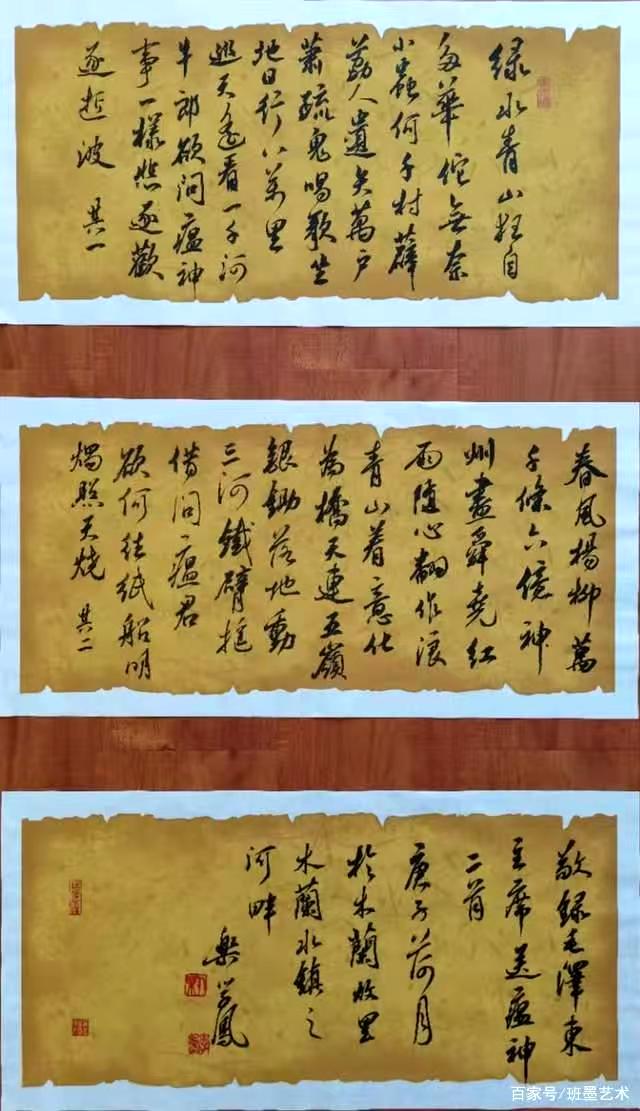 绿水青山枉自
多華佗無奈
小蟲何千村薜
荔人遺矢萬户
蕭疏鬼唱歌坐
地日行八萬里
巡天遥看一千河
牛郎欲問瘟神
事一樣悲逐歡
逐逝波 其一
春風楊柳萬
千條六億神
州盡舜堯紅
雨随心翻作浪
青山着意化
為橋天連五嶺
銀鋤落地動
三河鐵臂摇
借問瘟君
欲何往紙船明
燭照天燒 其二
敬録毛澤東
主席送瘟神
二首
庚子荷月
於木蘭故里
木蘭水鎮之
河畔
鳳
百家号/班墨艺术